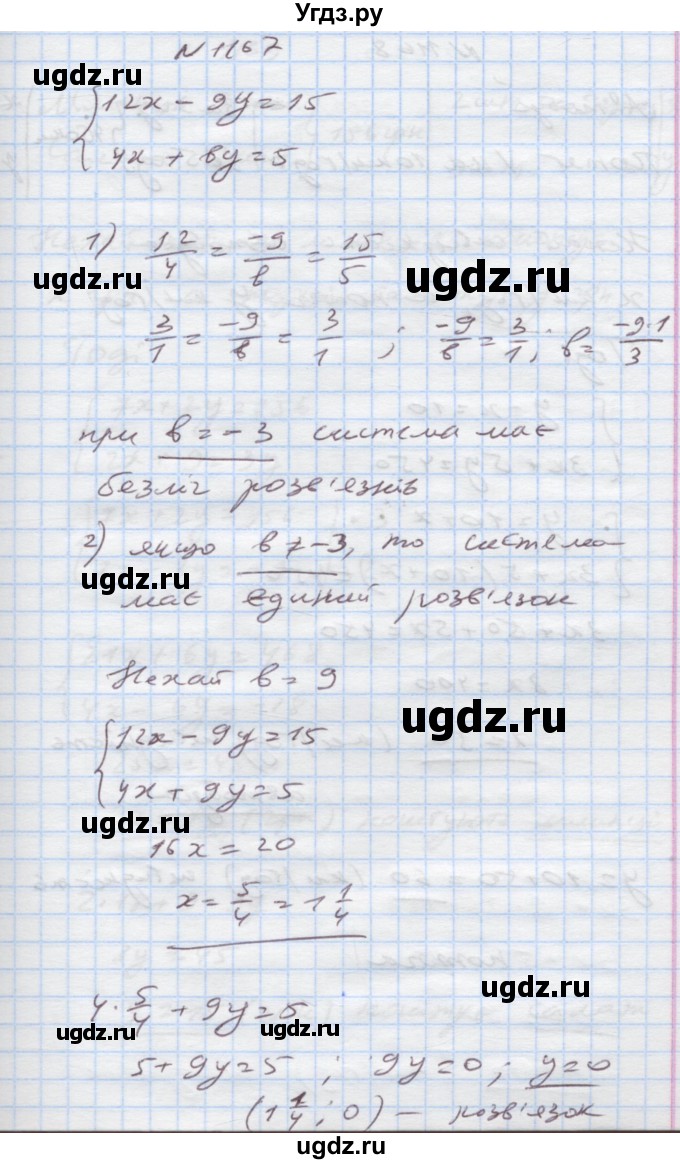 Угдз.ру
N 1167
ugdz.ru
{12x - 9y = 15
4x + вy = 5
1) 12/4 = -9/в = 15/5
ugdz.ru
ugdz.ru
3/1 = -9/в = 3/1 ; -9/в = 3/1 ; в = -9·1/3
при в = -3 система має
безліч розв'язків
2) якщо в ≠ -3, то система
ugdz.ru
має єдиний розв'язок
Нехай в = 9
ugdz.ru
{12x - 9y = 15
4x + 9y = 5
ugdz.ru
16x = 20
x = 5/4 = 1 1/4
ugdz.ru
4 · 5/4 + 9y = 5
ugdz.ru
ugdz.ru
5 + 9y = 5 ; 9y = 0 ; y = 0
(1 1/4 ; 0) - розв'язок
ugdz.ru